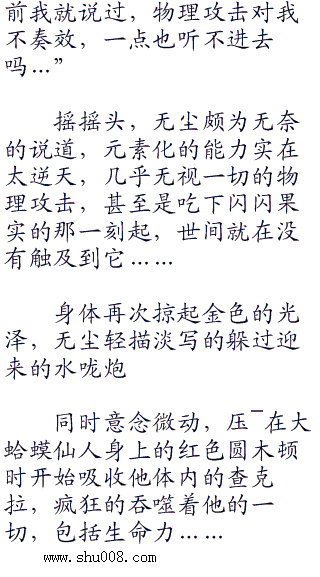 前我就说过，物理攻击对我
不奏效，一点也听不进去
吗…”
摇摇头，无尘颇为无奈
的说道，元素化的能力实在
太逆天，几乎无视一切的物
理攻击，甚至是吃下闪闪果
实的那一刻起，世间就在没
有触及到它……
身体再次掠起金色的光
泽，无尘轻描淡写的躲过迎
来的水咙炮
同时意念微动，压¯在大
蛤蟆仙人身上的红色圆木顿
时开始吸收他体内的查克
拉，疯狂的吞噬着他的一
切，包括生命力……
www.shu008.com